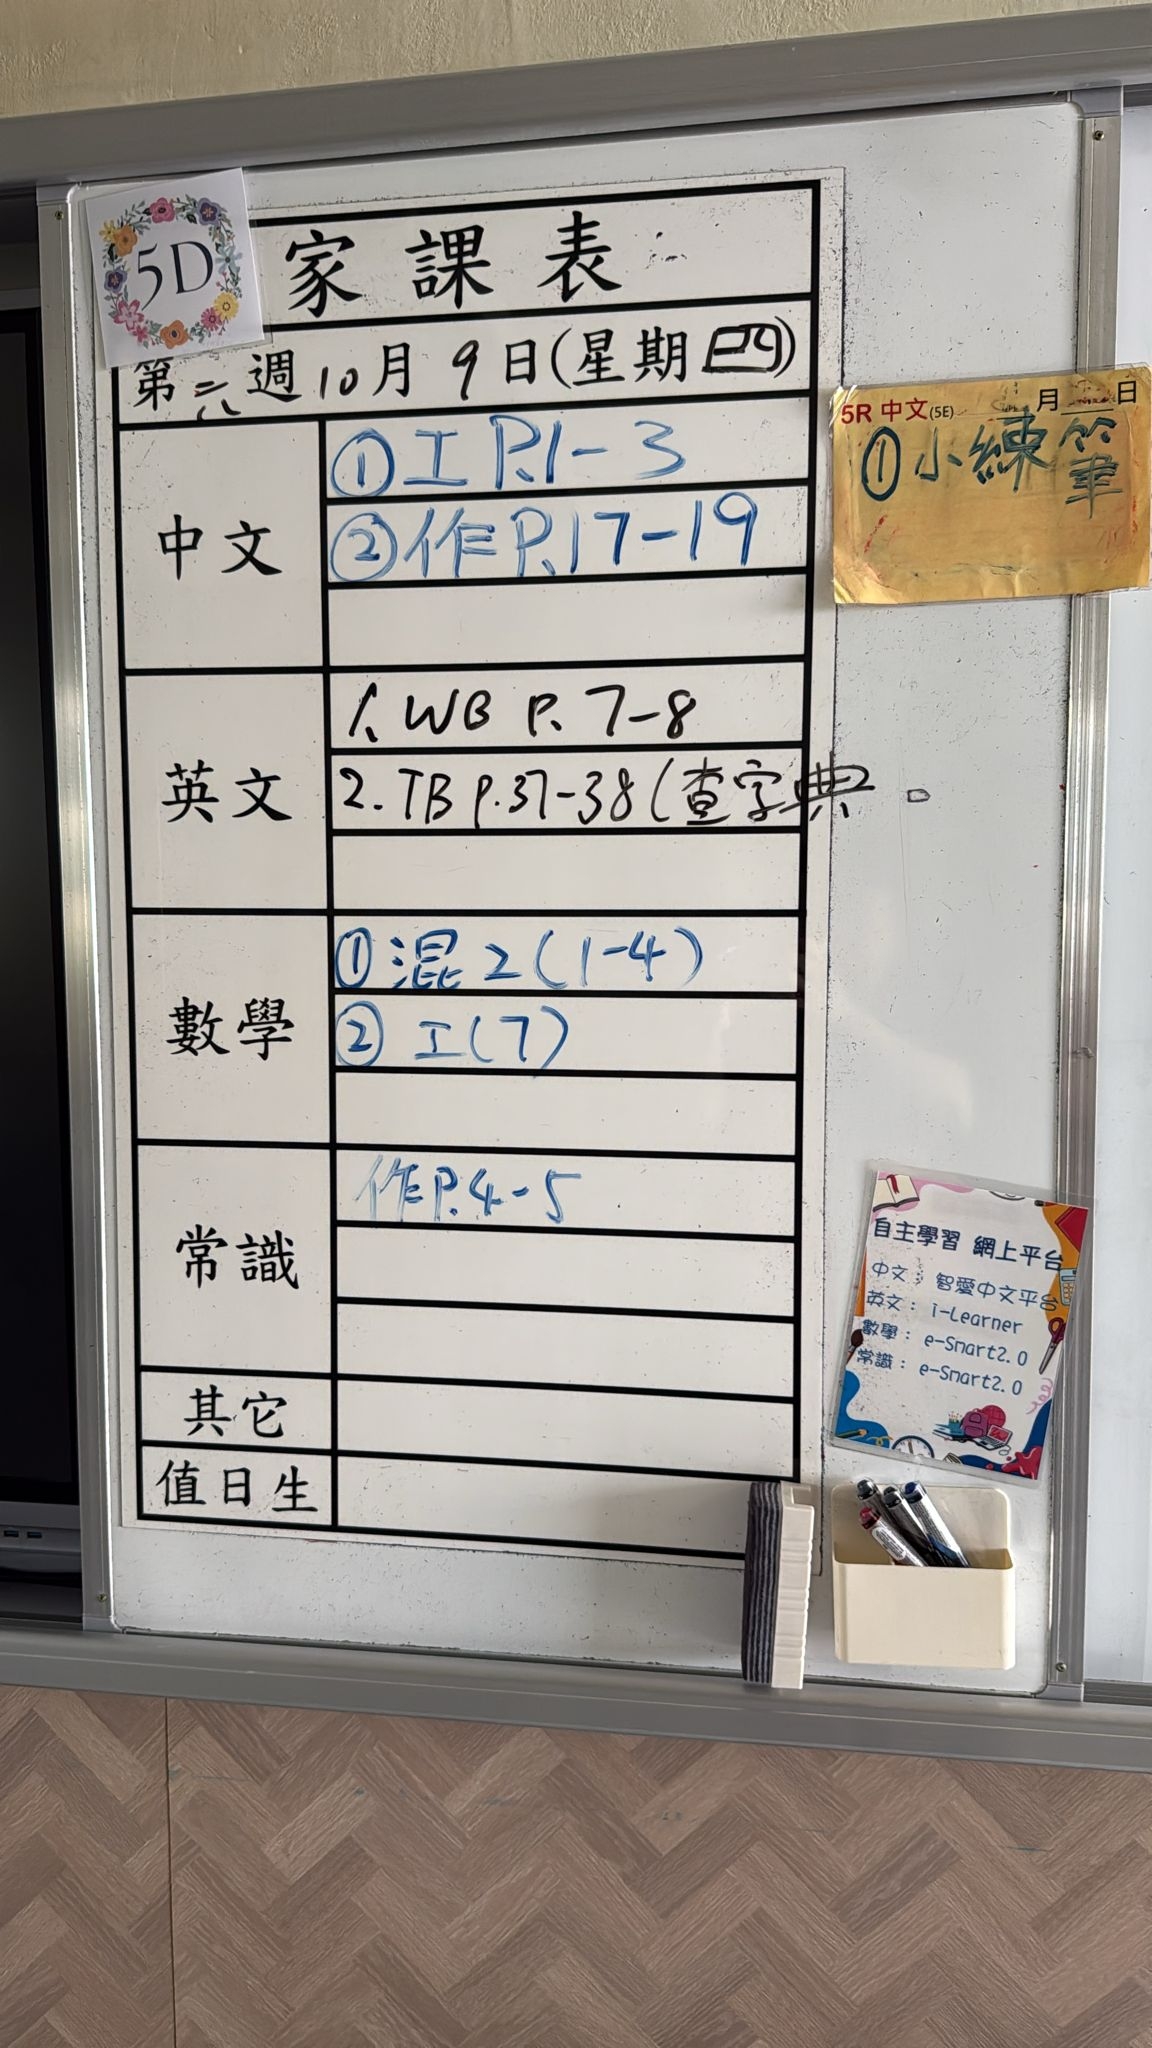 5D
家課表
第六週10月9日(星期四)
中文
①工 P.1-3
②作 P.17-19
英文
1. WB P. 7-8
2. TB P.37-38 (查字典
數學
①混2(1-4)
②工(7)
常識
作P.4-5
其它
值日生
5R 中文(5E) 月 日
①小練筆
自主學習 網上平台
中文： 智愛中文平台
英文： i-Learner
數學： e-Smart2.0
常識： e-Smart2.0